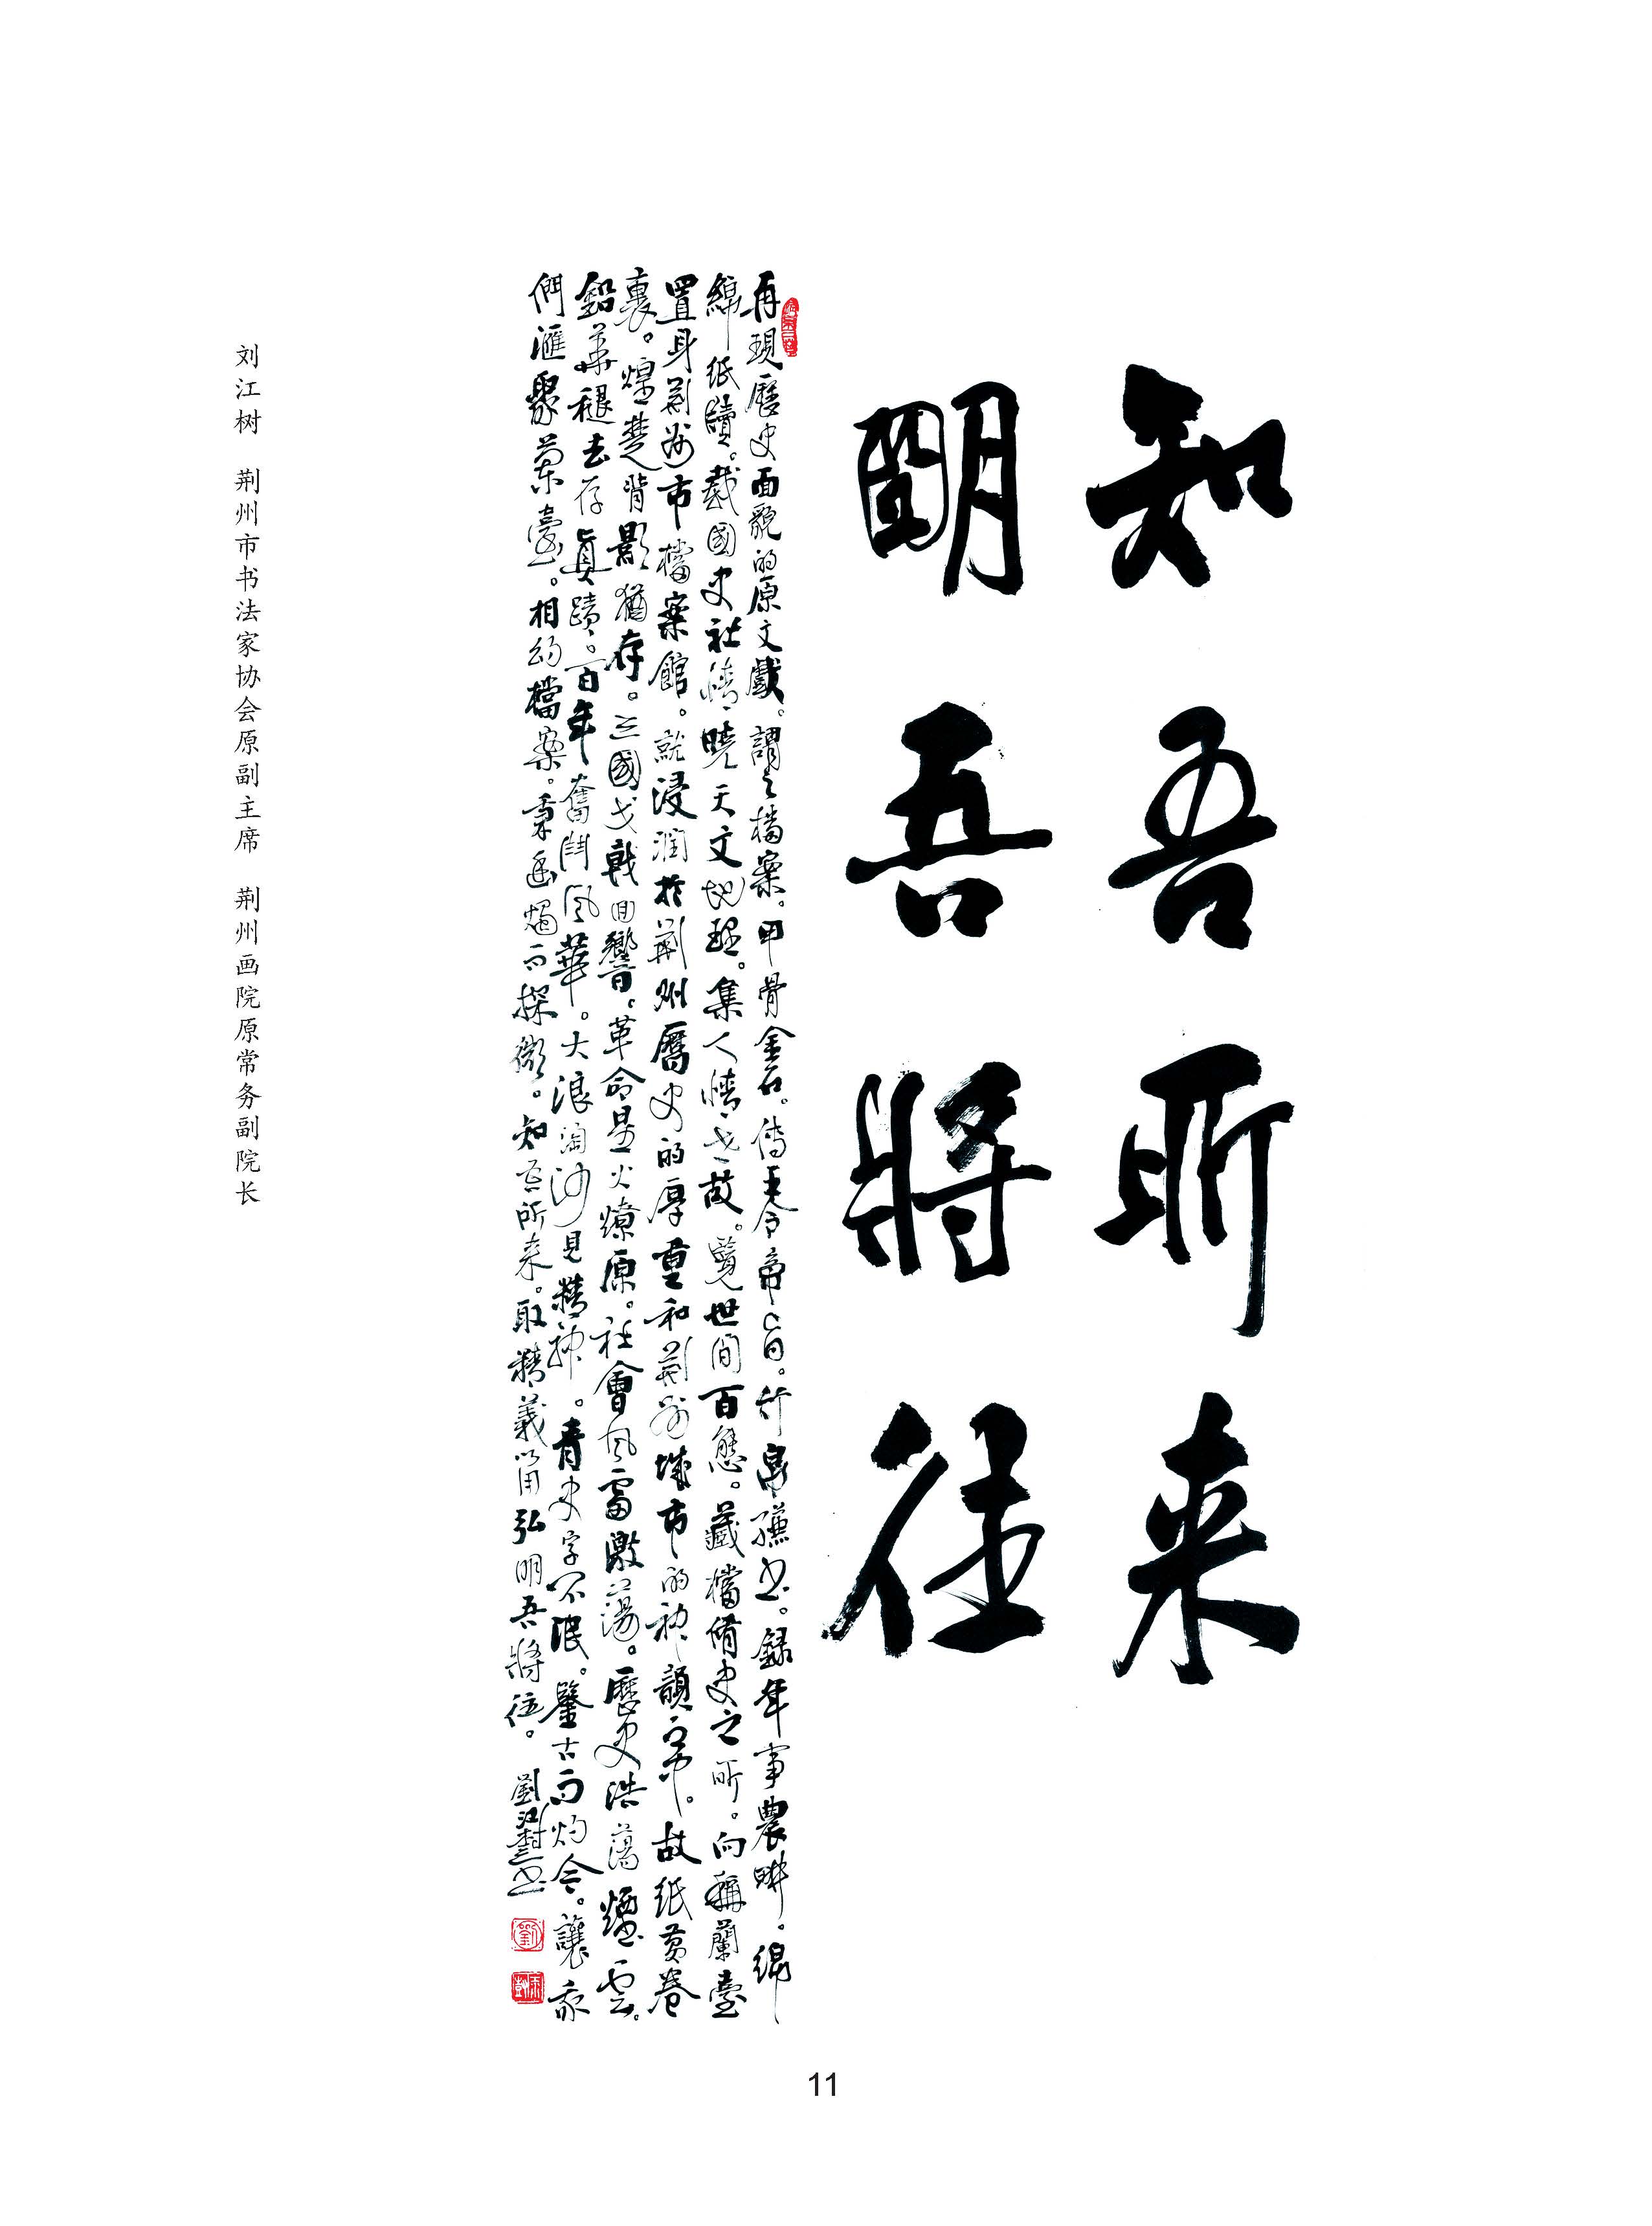 知吾所来
明吾將往
再現歷史面貌的原文獻。謂之檔案。甲骨金石。傳王令帝旨。竹帛縑書。録年事農畊。綿
綿紙牘。載國史社情、曉天文地理。集人情世故。覽世間百態。藏檔脩史之所。向稱蘭臺
置身荆州市檔案館。就浸潤於荆州歷史的厚重和荆州城市的神韻之中。故紙黄卷
裏。煌煌楚背影猶存。三國戈戟回響。革命星火燎原。社會風雷激蕩。歷史浩蕩煙雲。
鉛華褪去存真蹟。百年奮鬥風華。大浪淘沙見精神。青史字不泯。鑒古而灼今。讓我
們滙聚蘭臺。相約檔案。秉遥燭而探微。知吾所来。取精義以弘明吾將往。 劉江樹書
刘江树 荆州市书法家协会原副主席 荆州画院原常务副院长
11